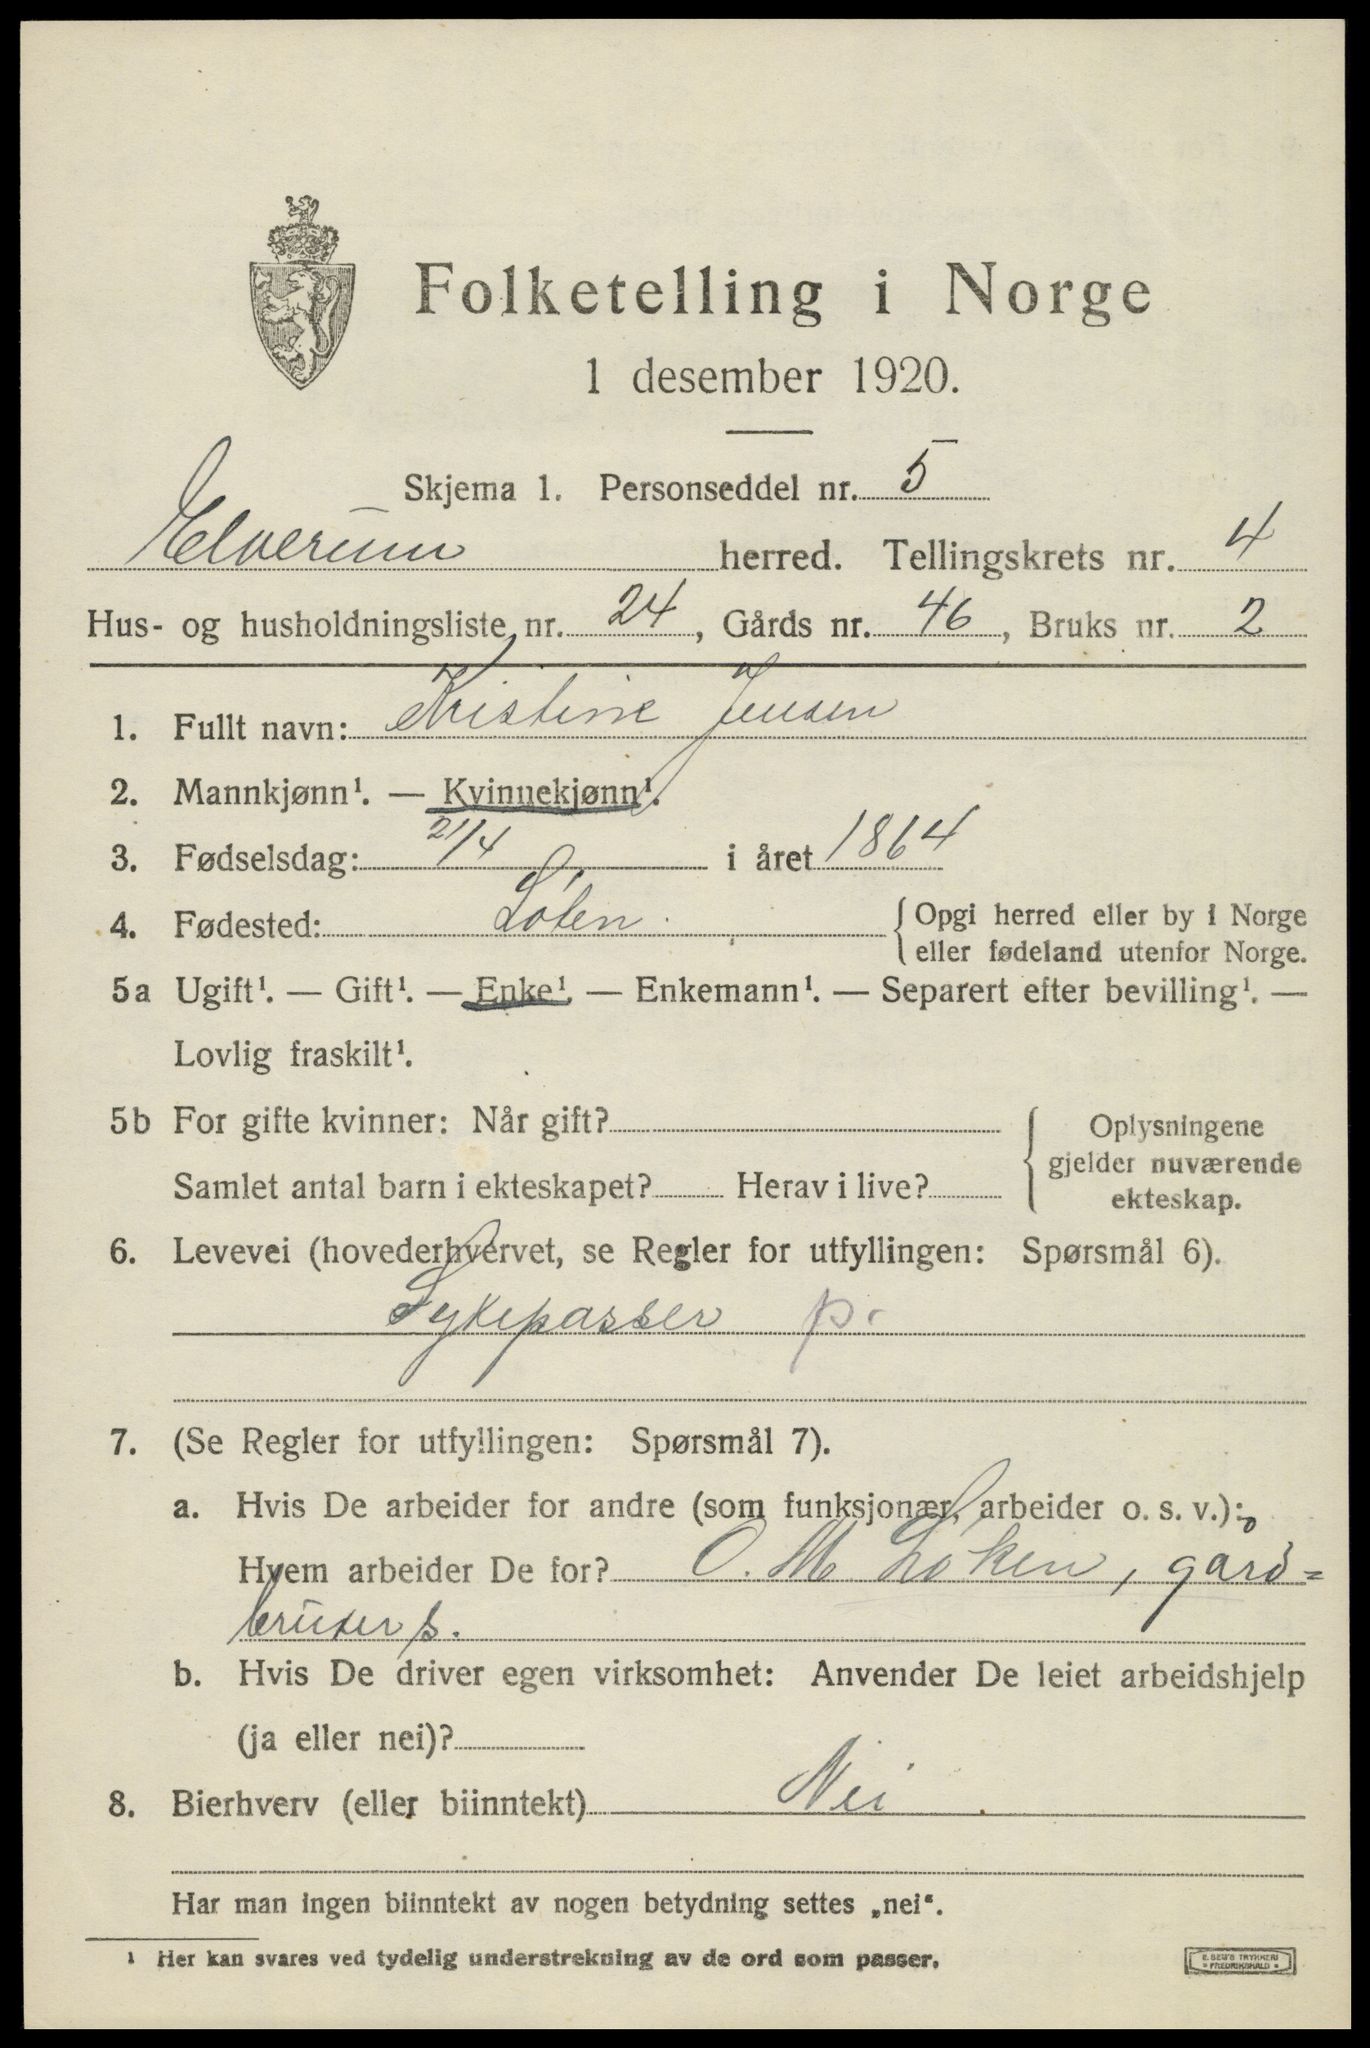 Folketelling i Norge
1 desember 1920.
Skjema 1. Personseddel nr. 5
Elverum herred. Tellingskrets nr. 4
Hus- og husholdningsliste nr. 24, Gårds nr. 46, Bruks nr. 2
1. Fullt navn: Kristine Jensen
2. Mannkjønn¹. — Kvinnekjønn¹.
3. Fødselsdag: 21/4 i året 1864
4. Fødested: Løten. { Opgi herred eller by i Norge
eller fødeland utenfor Norge.
5a Ugift¹. — Gift¹. — Enke¹. — Enkemann¹. — Separert efter bevilling¹. —
Lovlig fraskilt¹.
5b For gifte kvinner: Når gift? { Oplysningene
gjelder nuværende
Samlet antal barn i ekteskapet? Herav i live?
ekteskap.
6. Levevei (hovederhvervet, se Regler for utfyllingen: Spørsmål 6).
Sykepasser p.
7. (Se Regler for utfyllingen: Spørsmål 7).
a. Hvis De arbeider for andre (som funksjonær, arbeider o. s. v.):
Hvem arbeider De for? O. M. Løken, gård=
bruker s.
b. Hvis De driver egen virksomhet: Anvender De leiet arbeidshjelp
(ja eller nei)?
8. Bierhverv (eller biinntekt) Nei
Har man ingen biinntekt av nogen betydning settes „nei“.
¹ Her kan svares ved tydelig understrekning av de ord som passer.
E. SEM'S TRYKKERI
FREDRIKSHALD